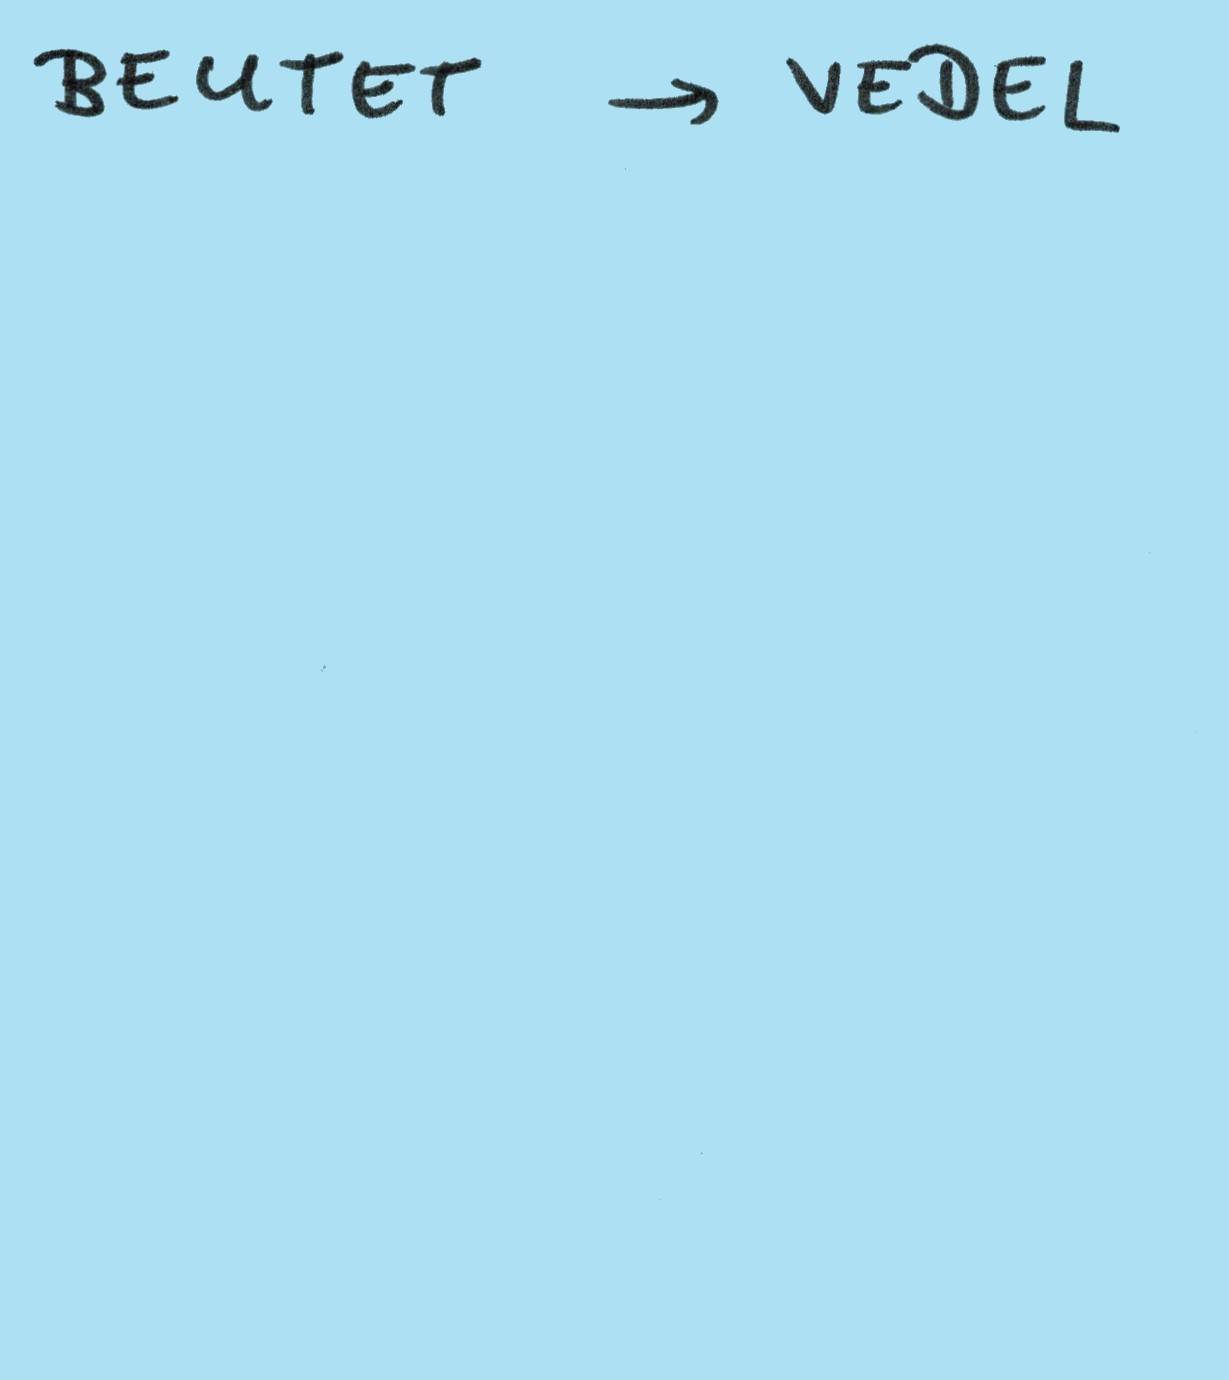 BEUTET → VEDEL